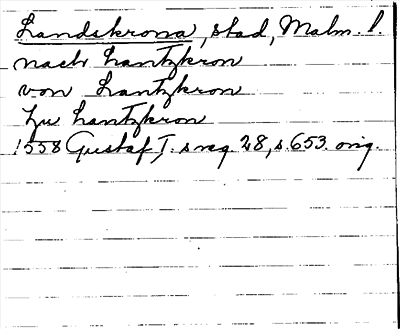 Landskrona, stad, Malm. l.
nach Lantzkron
von Lantzkron
Zu Lantzkron
1558 Gustaf I. s reg 28, s. 653. orig.